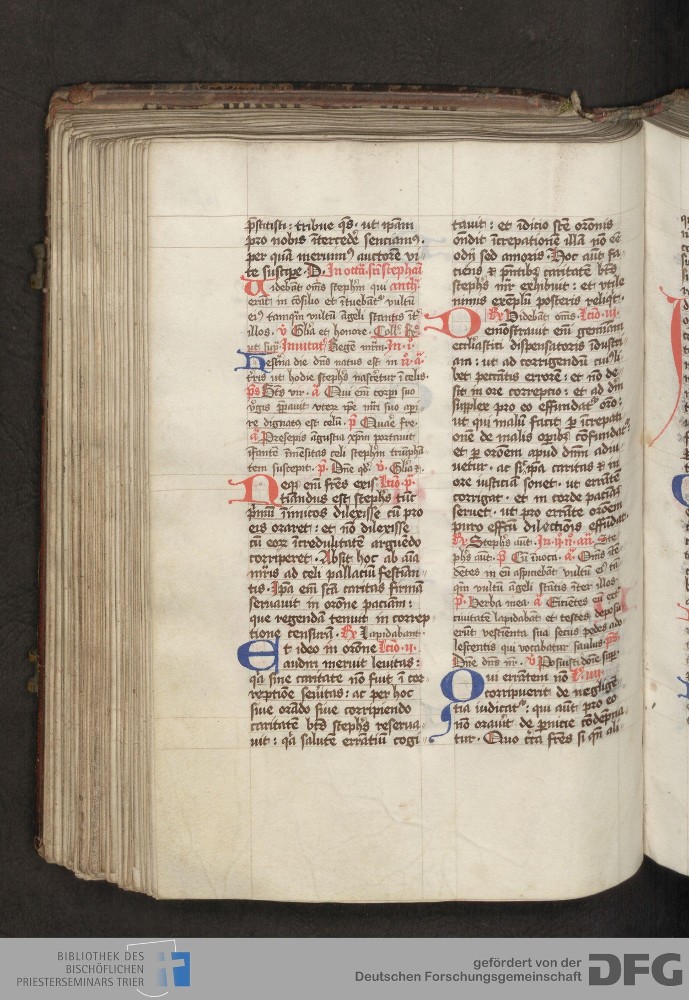 p̄stitisti : tribue q̄s · ut ip̄am
pro nobis ītercedē senciam9 ·
per quā meruim9 auctorē vi
te suscipe · D. In octa scī stephāi
Videbāt om̄s stephm̄ qui anth
erāt in cōsilio et ītuebāt vultū
ei9 tamqm̄ vultū āgeli stantis īt̄
illos · v̄ Glīa et honore · Coll
ut sup̄ Invitat Regē mr̄m · In · i ·
Hestna die dn̄s natus est in t̄
tris ut hodie stephs nascetur ī celis ·
p̄s Bt̄s vir · a Qui em̄ corpi suo
vgis p̄auit vterz ip̄e mr̄i suo api
re dignatus est celū · p̄ Quare fre ·
a Presepis āgustia xp̄m portauit
īfantē īmēsitas celi stephm̄ triūpha
tem suscepit · p̄ Dn̄e qd · v̄ Glīa z ·
Neq em̄ frēs cris Lc̄io p̄
tiandus est stephs tūc
p̄mū īimicos dilexisse cū pro
eis oraret : et nō dilexisse
cū eor īcredulitatē arguēdo
corriperet · Absit hoc ab aīa
mr̄is ad celi pallaciū festian
tis · Ip̄a em̄ scā caritas firma
seruauit in orōne paciam :
que regendā tenuit in correp
tione censurā · Rx Lapidabant ·
Et ideo in orōne Lc̄io · ii ·
audiri meruit leuitas :
qa sine caritate nō fuit ī cor
reptiōe seuitas : ac per hoc
siue orādo siue corripiendo
caritatē bt̄s stephs reserua
uit : qa salutē errātiū cogi
tauit : et īdicio scē orōnis
ondit īcrepationē illā nō eē
odij sed amoris · Hoc aūt fa
ciens z p̄ntib9 caritatē bt̄s
stephs nr̄ exhibuit : et vtile
nimis exēplū posteris reliqt ·
Rx Videbāt om̄s · Lc̄io · iii ·
Demōstrauit em̄ geminam
ecclīastici dispensatoris īdustri
am : ut ad corrigendū cui9li
bet peccātis errorē : et nō de
sit in ore correptio : et ad dm̄
supplex pro eo effundat orō :
ut qui malū facit p īcrepati
onē de malis opib9 cōfundat
et p orōem apud dnm̄ adiu
uetur · ac si ip̄a caritas z in
ore iusticiā sonet · ut errātē
corrigat · et in corde paciāz
seruet · ut pro errāte orōem
puro effcū dilectiōis effūdat ·
Rx Stephs aūt · In · ii · n · an Ste
phs aūt · p̄ Cū īuoca · a Om̄s īte
dētes in eū aspiciebāt vultū ei9 ta
qm̄ vultū āgeli stātis īter illos ·
p̄ Verba mea · a Eiciētes eū ext
ciuitatē lapidabāt et testes deposu
erūt vestimta sua secus pedes ado
lescentis qui vocabatur saulus · p̄s
Dn̄e dn̄s nr̄ · v̄ Posuisti dn̄e sup ·
Qui errātem nō L · iiii ·
corripuerit de negligē
tia iudicat : qui aūt pro eo
nō orauit de p̄nicie cōdēpna
tur · Quo cca frēs si qn̄ ali
BIBLIOTHEK DES
BISCHÖFLICHEN
PRIESTERSEMINARS TRIER
gefördert von der
Deutschen Forschungsgemeinschaft
DFG